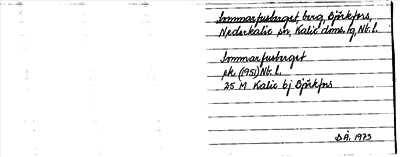 Sommarfusberget, berg, Björkfors,
Nederkalix sn, Kalix dms. tg, Nb. l.
Sommarfusberget
ek. (1951) Nb. l.
25 M Kalix bj Björkfors
DÅ. 1973